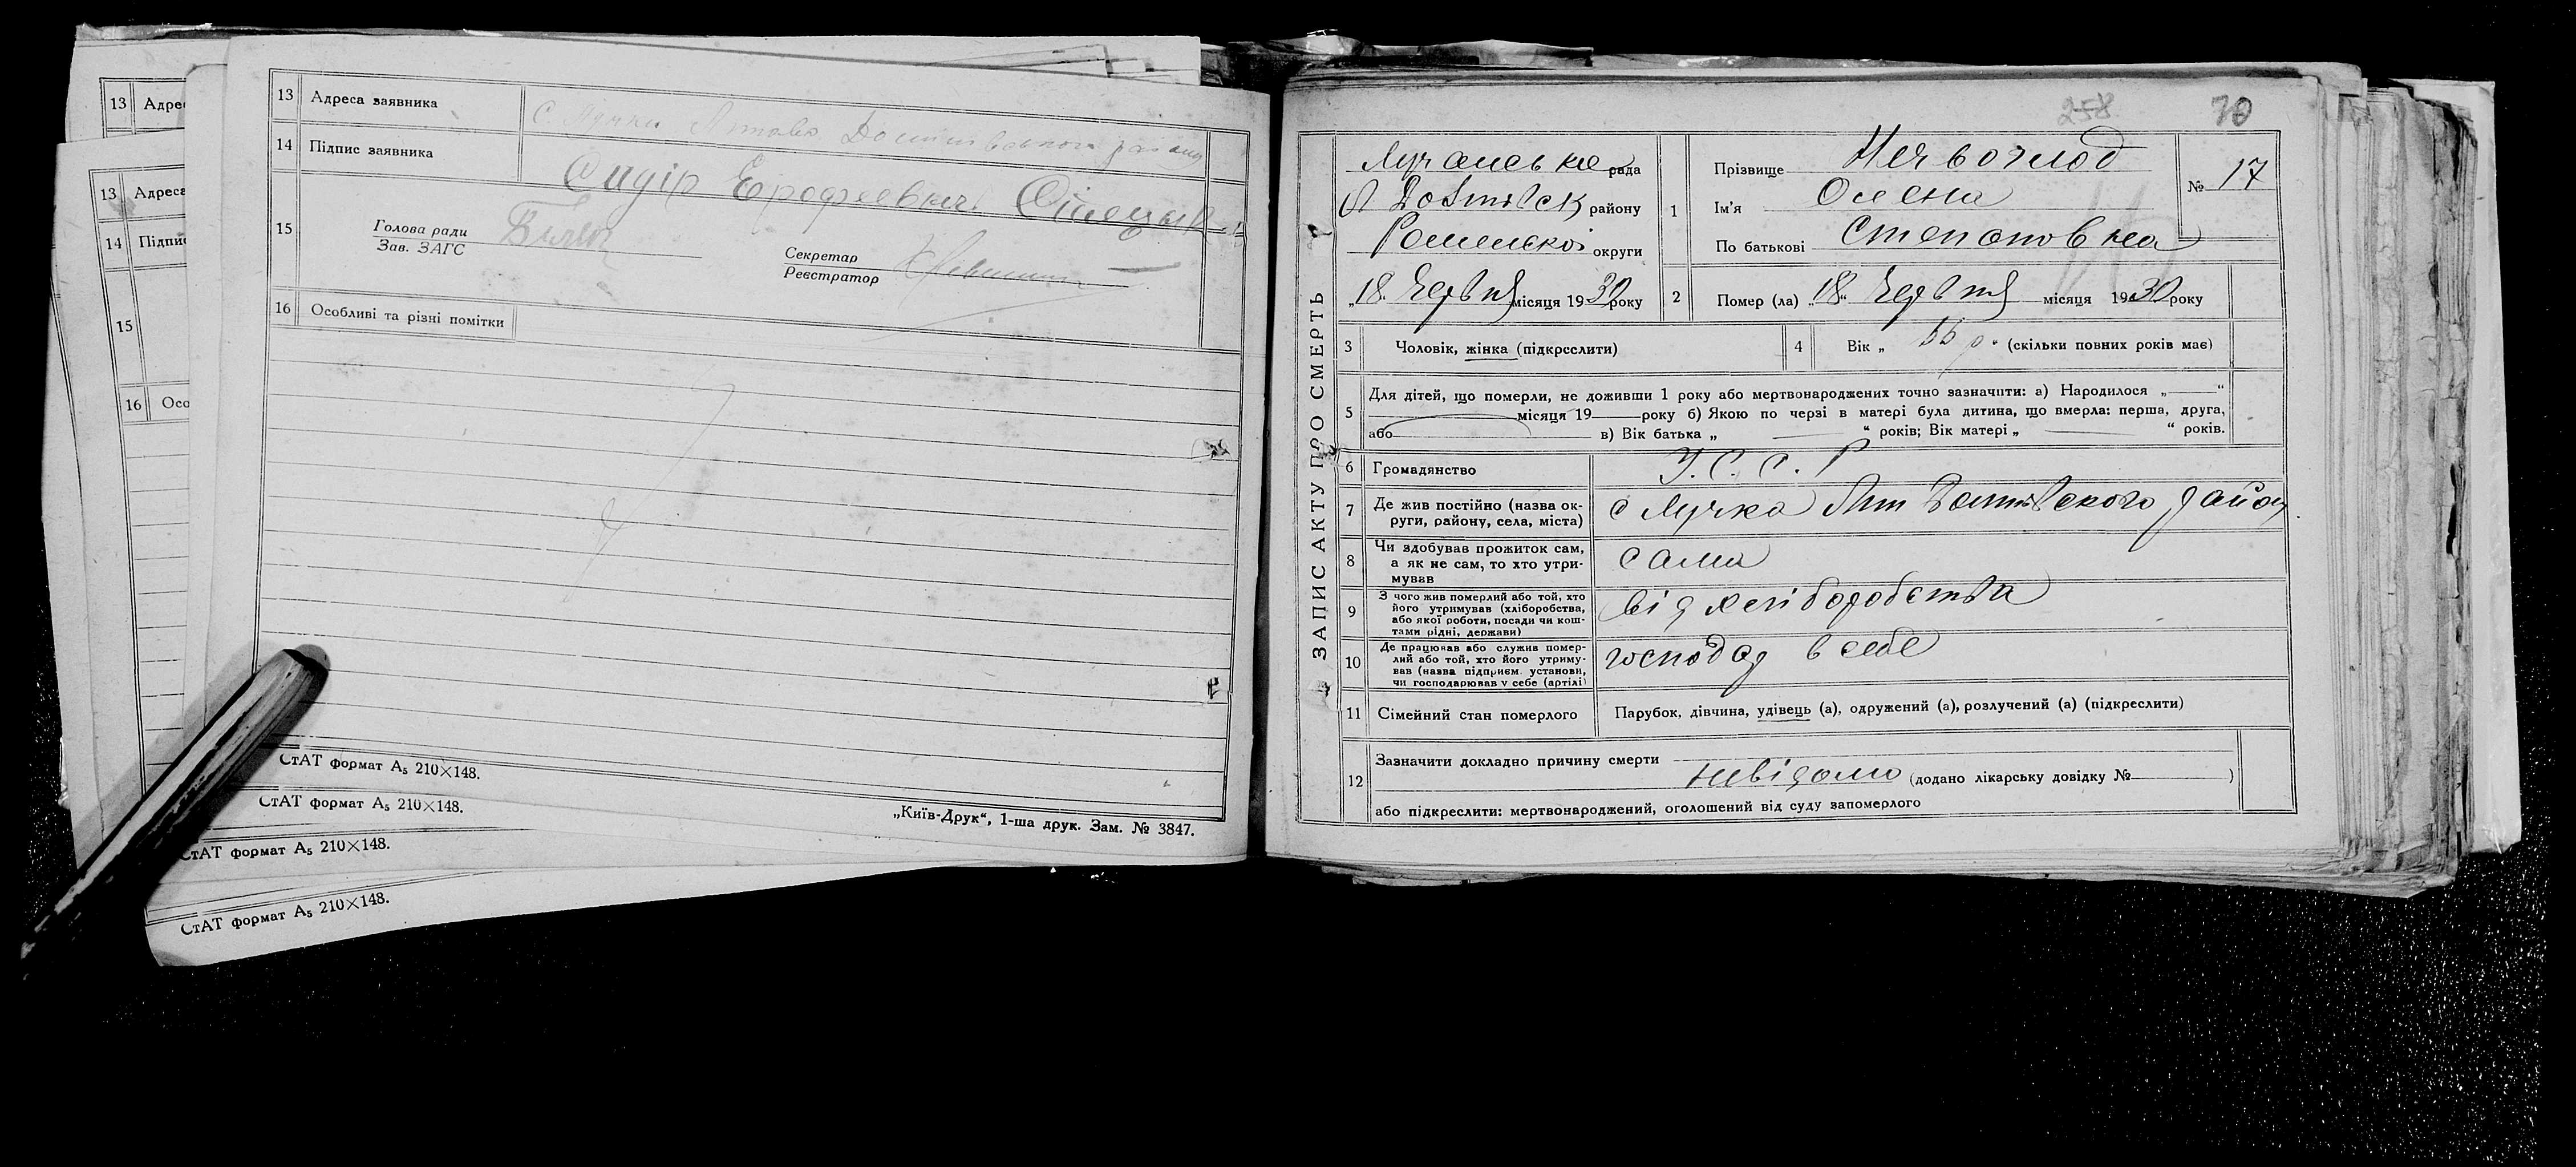 13 Адре
13 Адреса
14 Підпис
15
16 Осо
13 Адреса заявника
14 Підпис заявника
Сидір Ерофеевич
15 Голова ради
Зав. ЗАГС
Секретар
Реєстратор
16 Особливі та різні помітки
СтАТ формат А₅ 210×148.
СтАТ формат А₅ 210×148.
СтАТ формат А₅ 210×148.
СтАТ формат А₅ 210×148.
„Київ-Друк“, 1-ша друк. Зам. № 3847.
258 70
ЗАПИС АКТУ ПРО СМЕРТЬ
Лучанська рада
району
Роменської округи
„18“ Червня місяця 1930 року
1 Прізвище
Ім'я Олена
По батькові Степановна
№ 17
2 Помер (ла) „18“ Червня місяця 1930 року
3 Чоловік, жінка (підкреслити)
4 Вік „55 р.“ (скільки повних років має)
5 Для дітей, що померли, не доживши 1 року або мертвонароджених точно зазначити: а) Народилося „ “
місяця 19 року б) Якою по черзі в матері була дитина, що вмерла: перша, друга,
або в) Вік батька „ “ років; Вік матері „ “ років.
6 Громадянство У.С.С.Р
7 Де жив постійно (назва ок-
руги, району, села, міста)
с Лучка Лип Долинського район
8 Чи здобував прожиток сам,
а як не сам, то хто утри-
мував
сама
9 З чого жив померлий або той, хто
його утримував (хліборобства,
або якої роботи, посади чи кош-
тами рідні, держави)
від хліборобства
10 Де працював або служив помер-
лий або той, хто його утриму-
вав (назва підприєм. установи,
чи господарював у себе (артілі)
господар в себе
11 Сімейний стан померлого Парубок, дівчина, удівець (а), одружений (а), розлучений (а) (підкреслити)
12 Зазначити докладно причину смерти
невідомо (додано лікарську довідку № )
або підкреслити: мертвонароджений, оголошений від суду запомерлого